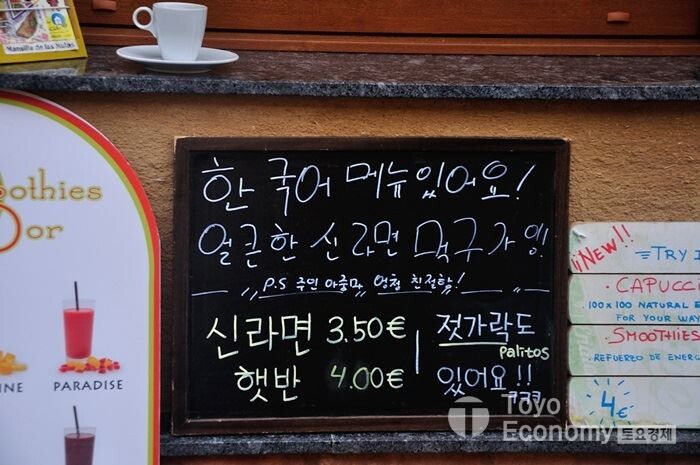 Mansilla de las Mulas
한국어 메뉴있어요!
얼큰한 신라면 먹구가잉!
P.S 주인 아줌마 엄청 친절함!
신라면 3.50€
햇반 4.00€
젓가락도
palitos
있어요!!
ㅋㅋㅋ
oothies
Dor
INE
PARADISE
¡NEW!!
TRY I
· CAPUCCI
100 x 100 NATURAL E
FOR YOUR WAY
· SMOOTHIES
· REFUERZO DE ENERG
4€
Toyo
Economy
토요경제